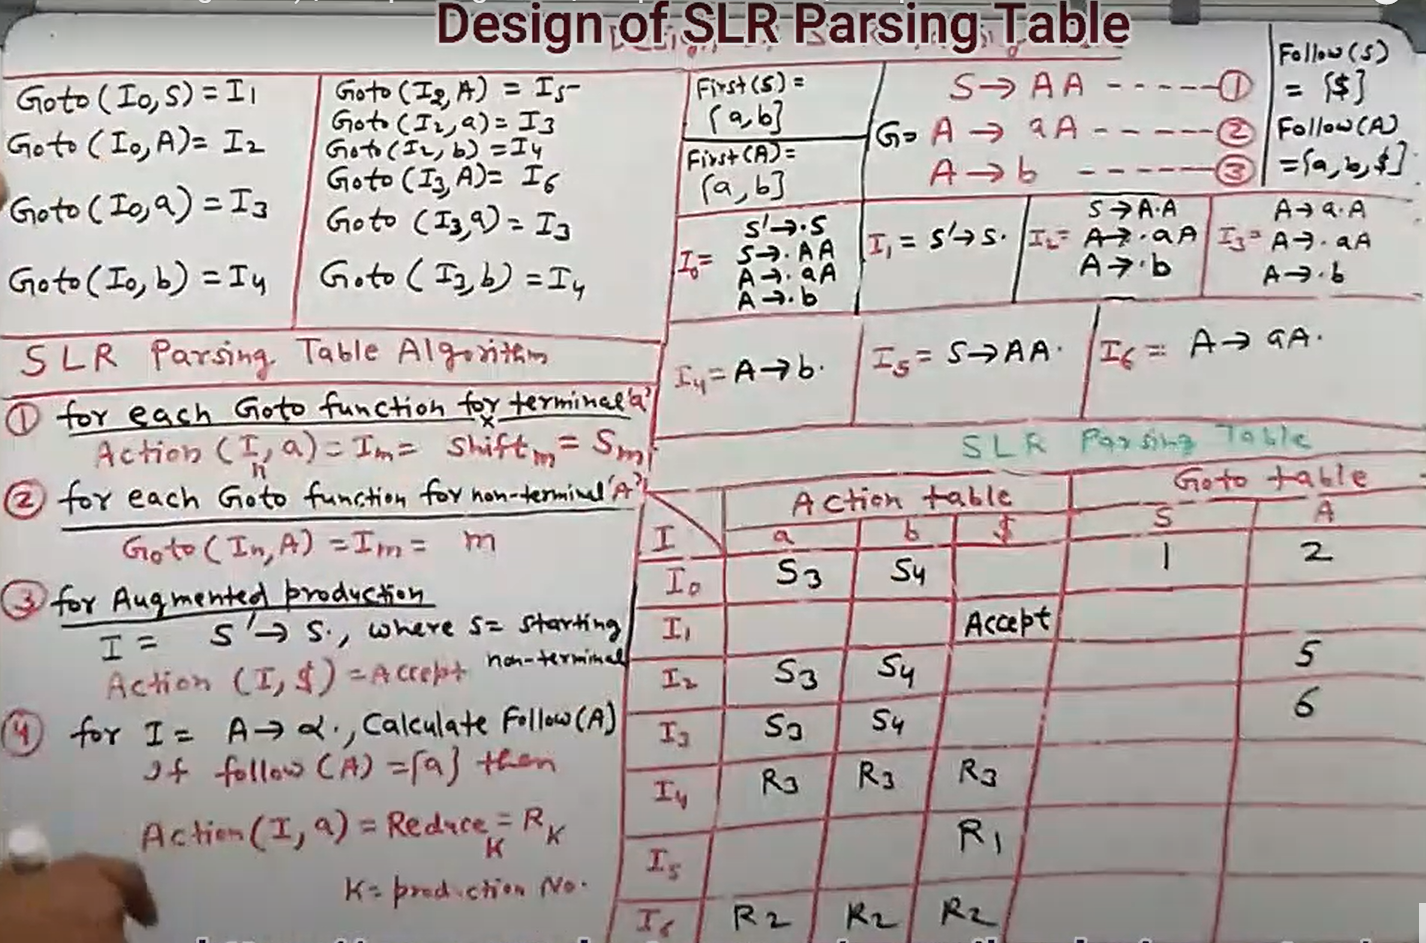 Design of SLR Parsing Table
Goto (I0, S) = I1
Goto (I0, A) = I2
Goto (I0, a) = I3
Goto (I0, b) = I4
Goto (I2, A) = I5
Goto (I2, a) = I3
Goto (I2, b) = I4
Goto (I3, A) = I6
Goto (I3, a) = I3
Goto (I3, b) = I4
First (S) =
{a, b}
First (A) =
{a, b}
S → AA ------ ①
G= A → aA ----- ②
A → b ------ ③
Follow (S)
= {$}
Follow (A)
= {a, b, $}
I0=
S' → .S
S → .AA
A → .aA
A → .b
I1 = S' → S.
I2=
S → A.A
A → .aA
A → .b
I3=
A → a.A
A → .aA
A → .b
I4 = A → b.
I5 = S → AA.
I6 = A → aA.
SLR Parsing Table Algorithm
① for each Goto function for terminal 'a'
x
Action (In, a) = Im = Shift m = Sm
② for each Goto function for non-terminal 'A'
Goto (In, A) = Im = m
③ for Augmented production
I = S' → S., where S= starting
non-terminal
Action (I, $) = Accept
④ for I = A → α., Calculate Follow (A)
If follow (A) = {a} then
Action (I, a) = Reduce K = RK
K = production No.
SLR Parsing Table
I Action table Goto table
a b $ S A
I0 S3 S4 1 2
I1 Accept
I2 S3 S4 5
I3 S3 S4 6
I4 R3 R3 R3
I5 R1
I6 R2 R2 R2